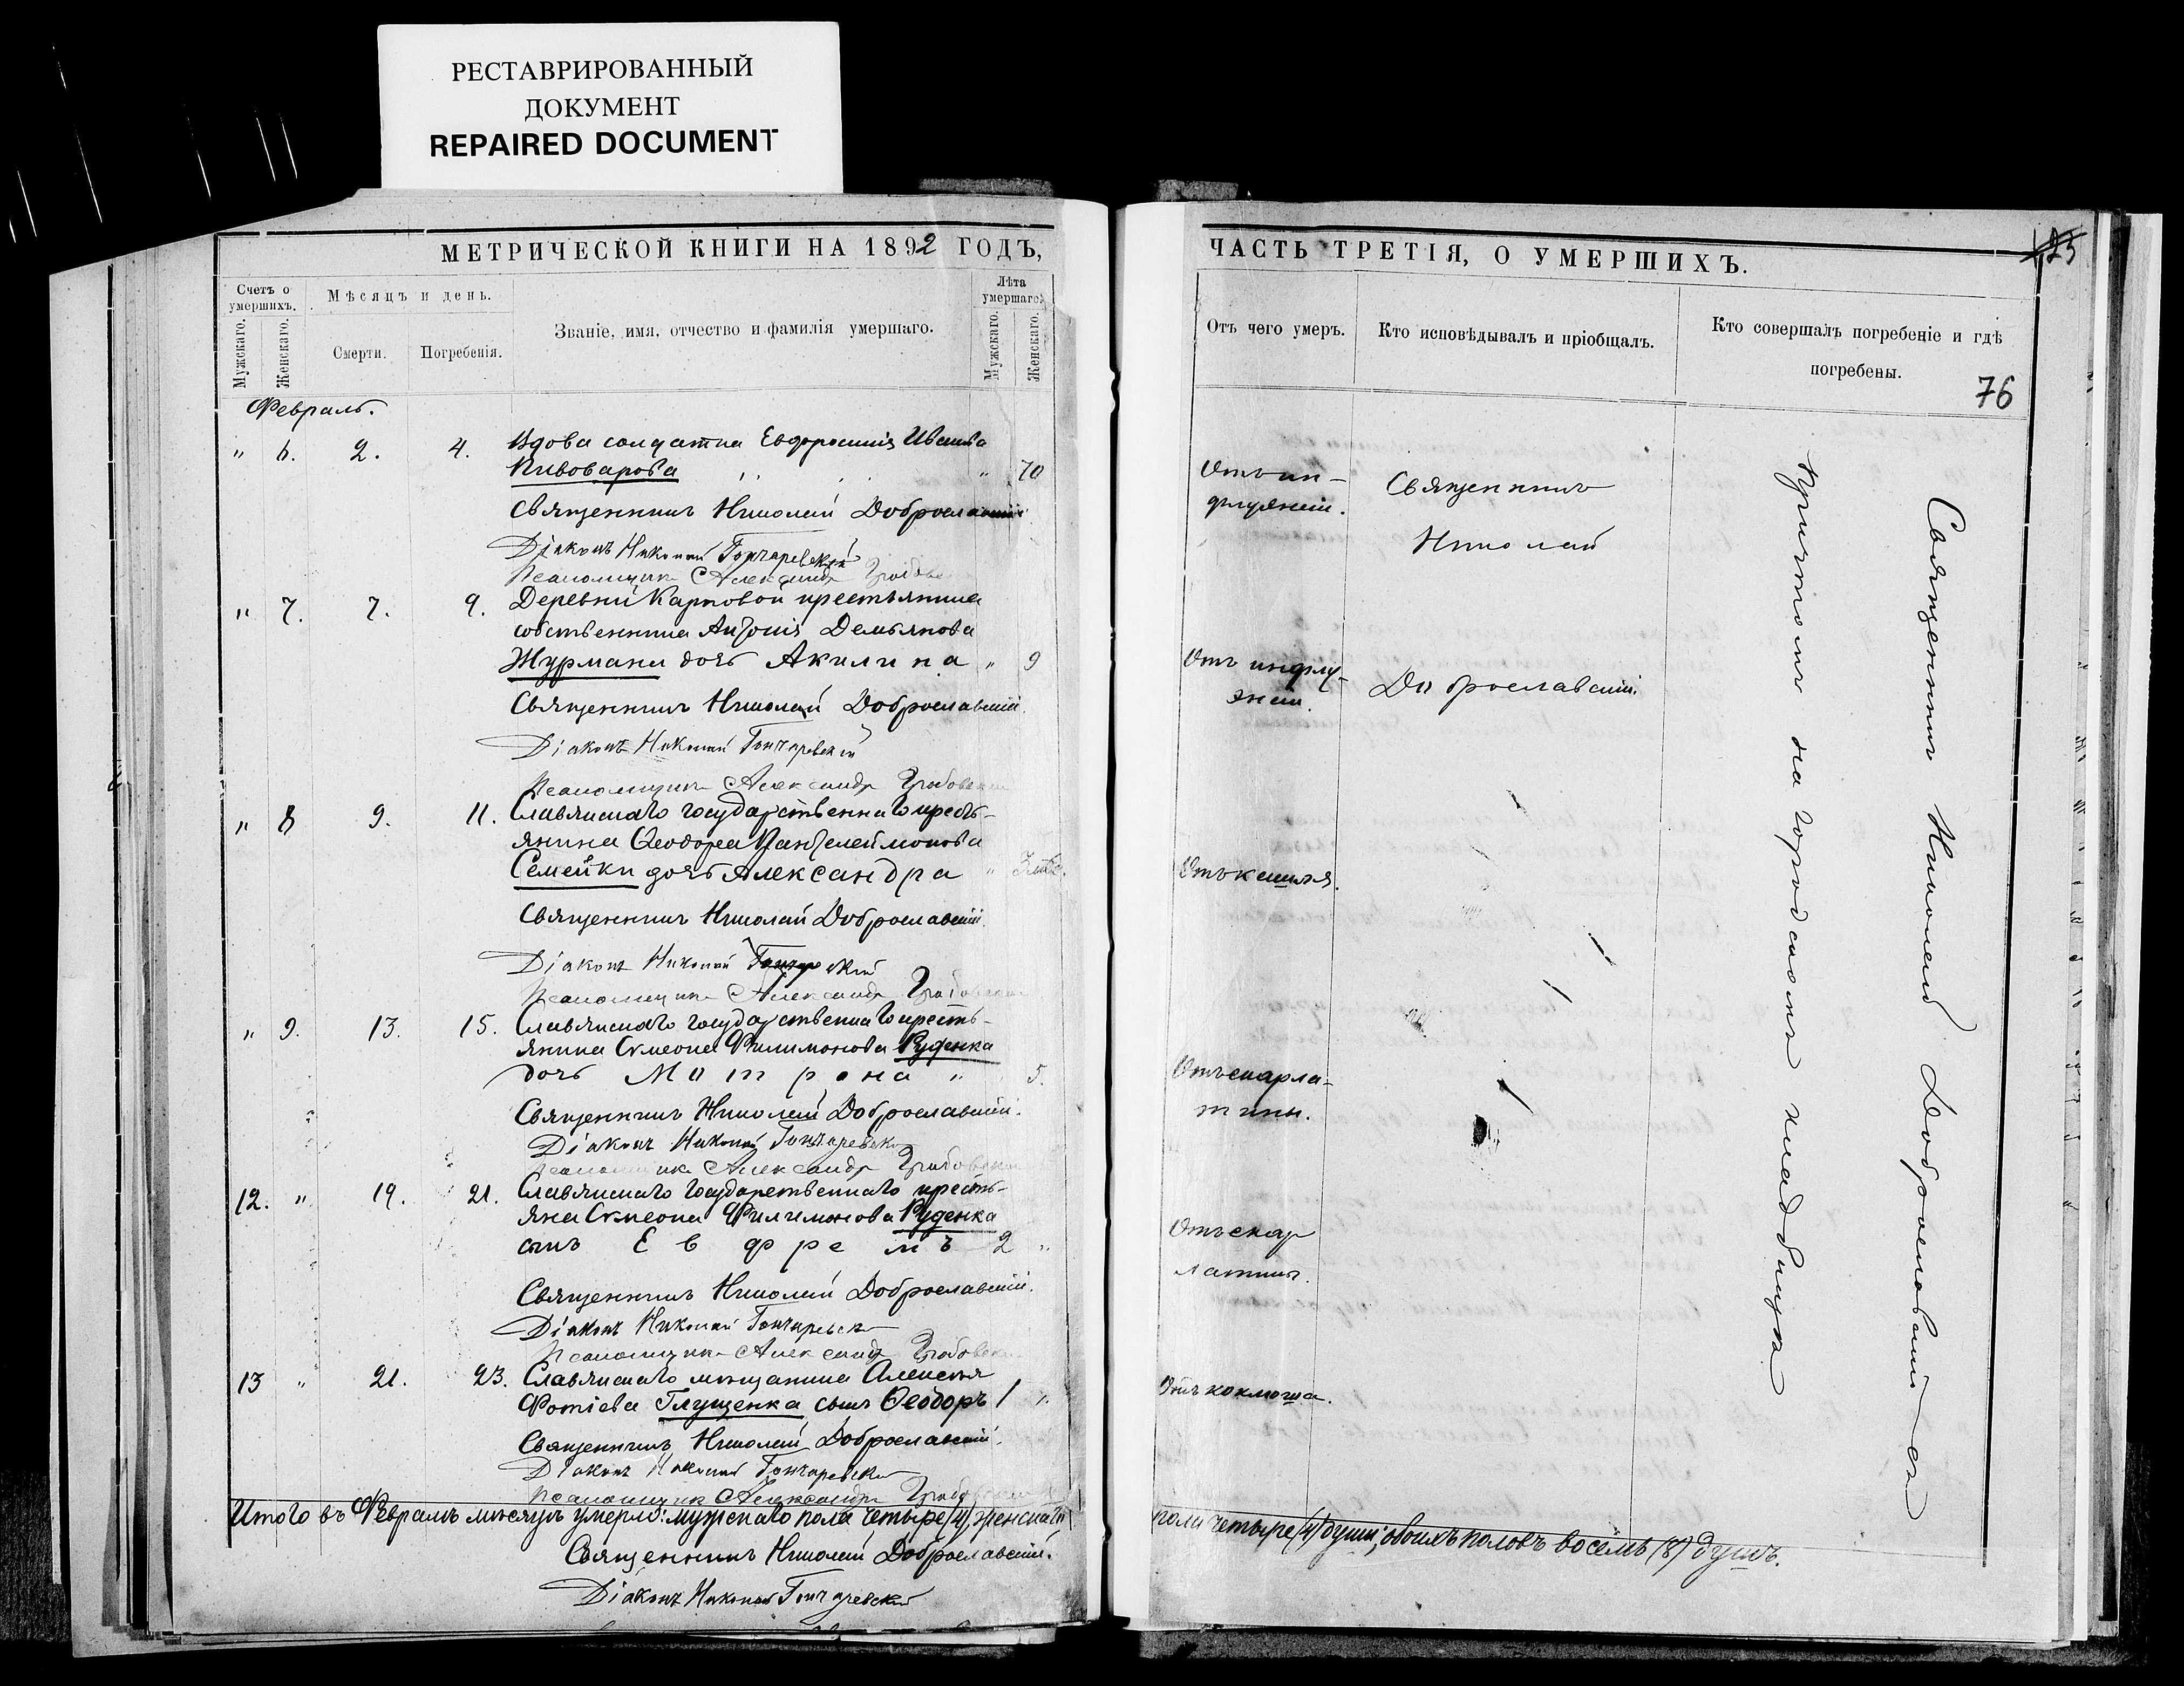 РЕСТАВРИРОВАННЫЙ
ДОКУМЕНТ
REPAIRED DOCUMENT
МЕТРИЧЕСКОЙ КНИГИ НА 1892 ГОДЪ,
Счетъ о умершихъ.
Мужскаго.
Женскаго.
Мѣсяцъ и день.
Смерти.
Погребенія.
Званіе, имя, отчество и фамилія умершаго.
Лѣта умершаго.
Мужскаго.
Женскаго.
Февраль.
" 6. 2. 4. Вдова солдатка Евфросинія Иванова
Пивоварова " 70
Священникъ Николай Доброславскій
Діаконъ Николай Гончаревскій
Псаломщикъ Александръ
" 7. 7. 9. Деревни Карповой крестьянина
собственника Антонія Демьянова
Журмана дочь Акилина " 9
Священникъ Николай Доброславскій.
Діаконъ Николай Гончаревскій
Псаломщикъ Александръ
" 8 9. 11. Славянскаго государственнаго кресть-
янина Ѳеодора Пантелеймонова
Семейки дочь Александра "
Священникъ Николай Доброславскій.
Діаконъ Николай Гончаревскій
Псаломщикъ Александръ
" 9. 13. 15. Славянскаго государственнаго кресть-
янина Сѵмеона Филимонова Руденка
дочь Матрона " 5.
Священникъ Николай Доброславскій.
Діаконъ Николай Гончаревскій
Псаломщикъ Александръ
12. " 19. 21. Славянскаго государственнаго кресть-
яна Сѵмеона Филимонова Руденка
сынъ Евфремъ 2 "
Священникъ Николай Доброславскій.
Діаконъ Николай Гончаревскій
Псаломщикъ Александръ
13 " 21. 23. Славянскаго мѣщанина Алексѣя
Фотіева Глущенка сынъ Ѳеодоръ 1 "
Священникъ Николай Доброславскій.
Діаконъ Николай Гончаревскій
Псаломщикъ Александръ
Итого въ Февралѣ мѣсяцѣ умерло: мужскаго пола четыре (4), женскаго
Священникъ Николай Доброславскій.
Діаконъ Николай Гончаревскій
ЧАСТЬ ТРЕТІЯ, О УМЕРШИХЪ.
125
Отъ чего умеръ.
Кто исповѣдывалъ и пріобщалъ.
Кто совершалъ погребеніе и гдѣ
погребены.
76
Отъ ин-
флуэнціи.
Священникъ
Николай
Отъ инфлу-
энціи.
Доброславскій.
Отъ кашля.
Отъ скарла-
тины.
Отъ скар
латины.
Отъ коклюша.
Священникъ Николай Доброславскій съ
причтомъ на городскомъ кладбищѣ
пола четыре (4) души; обоихъ половъ восемь (8) душъ.